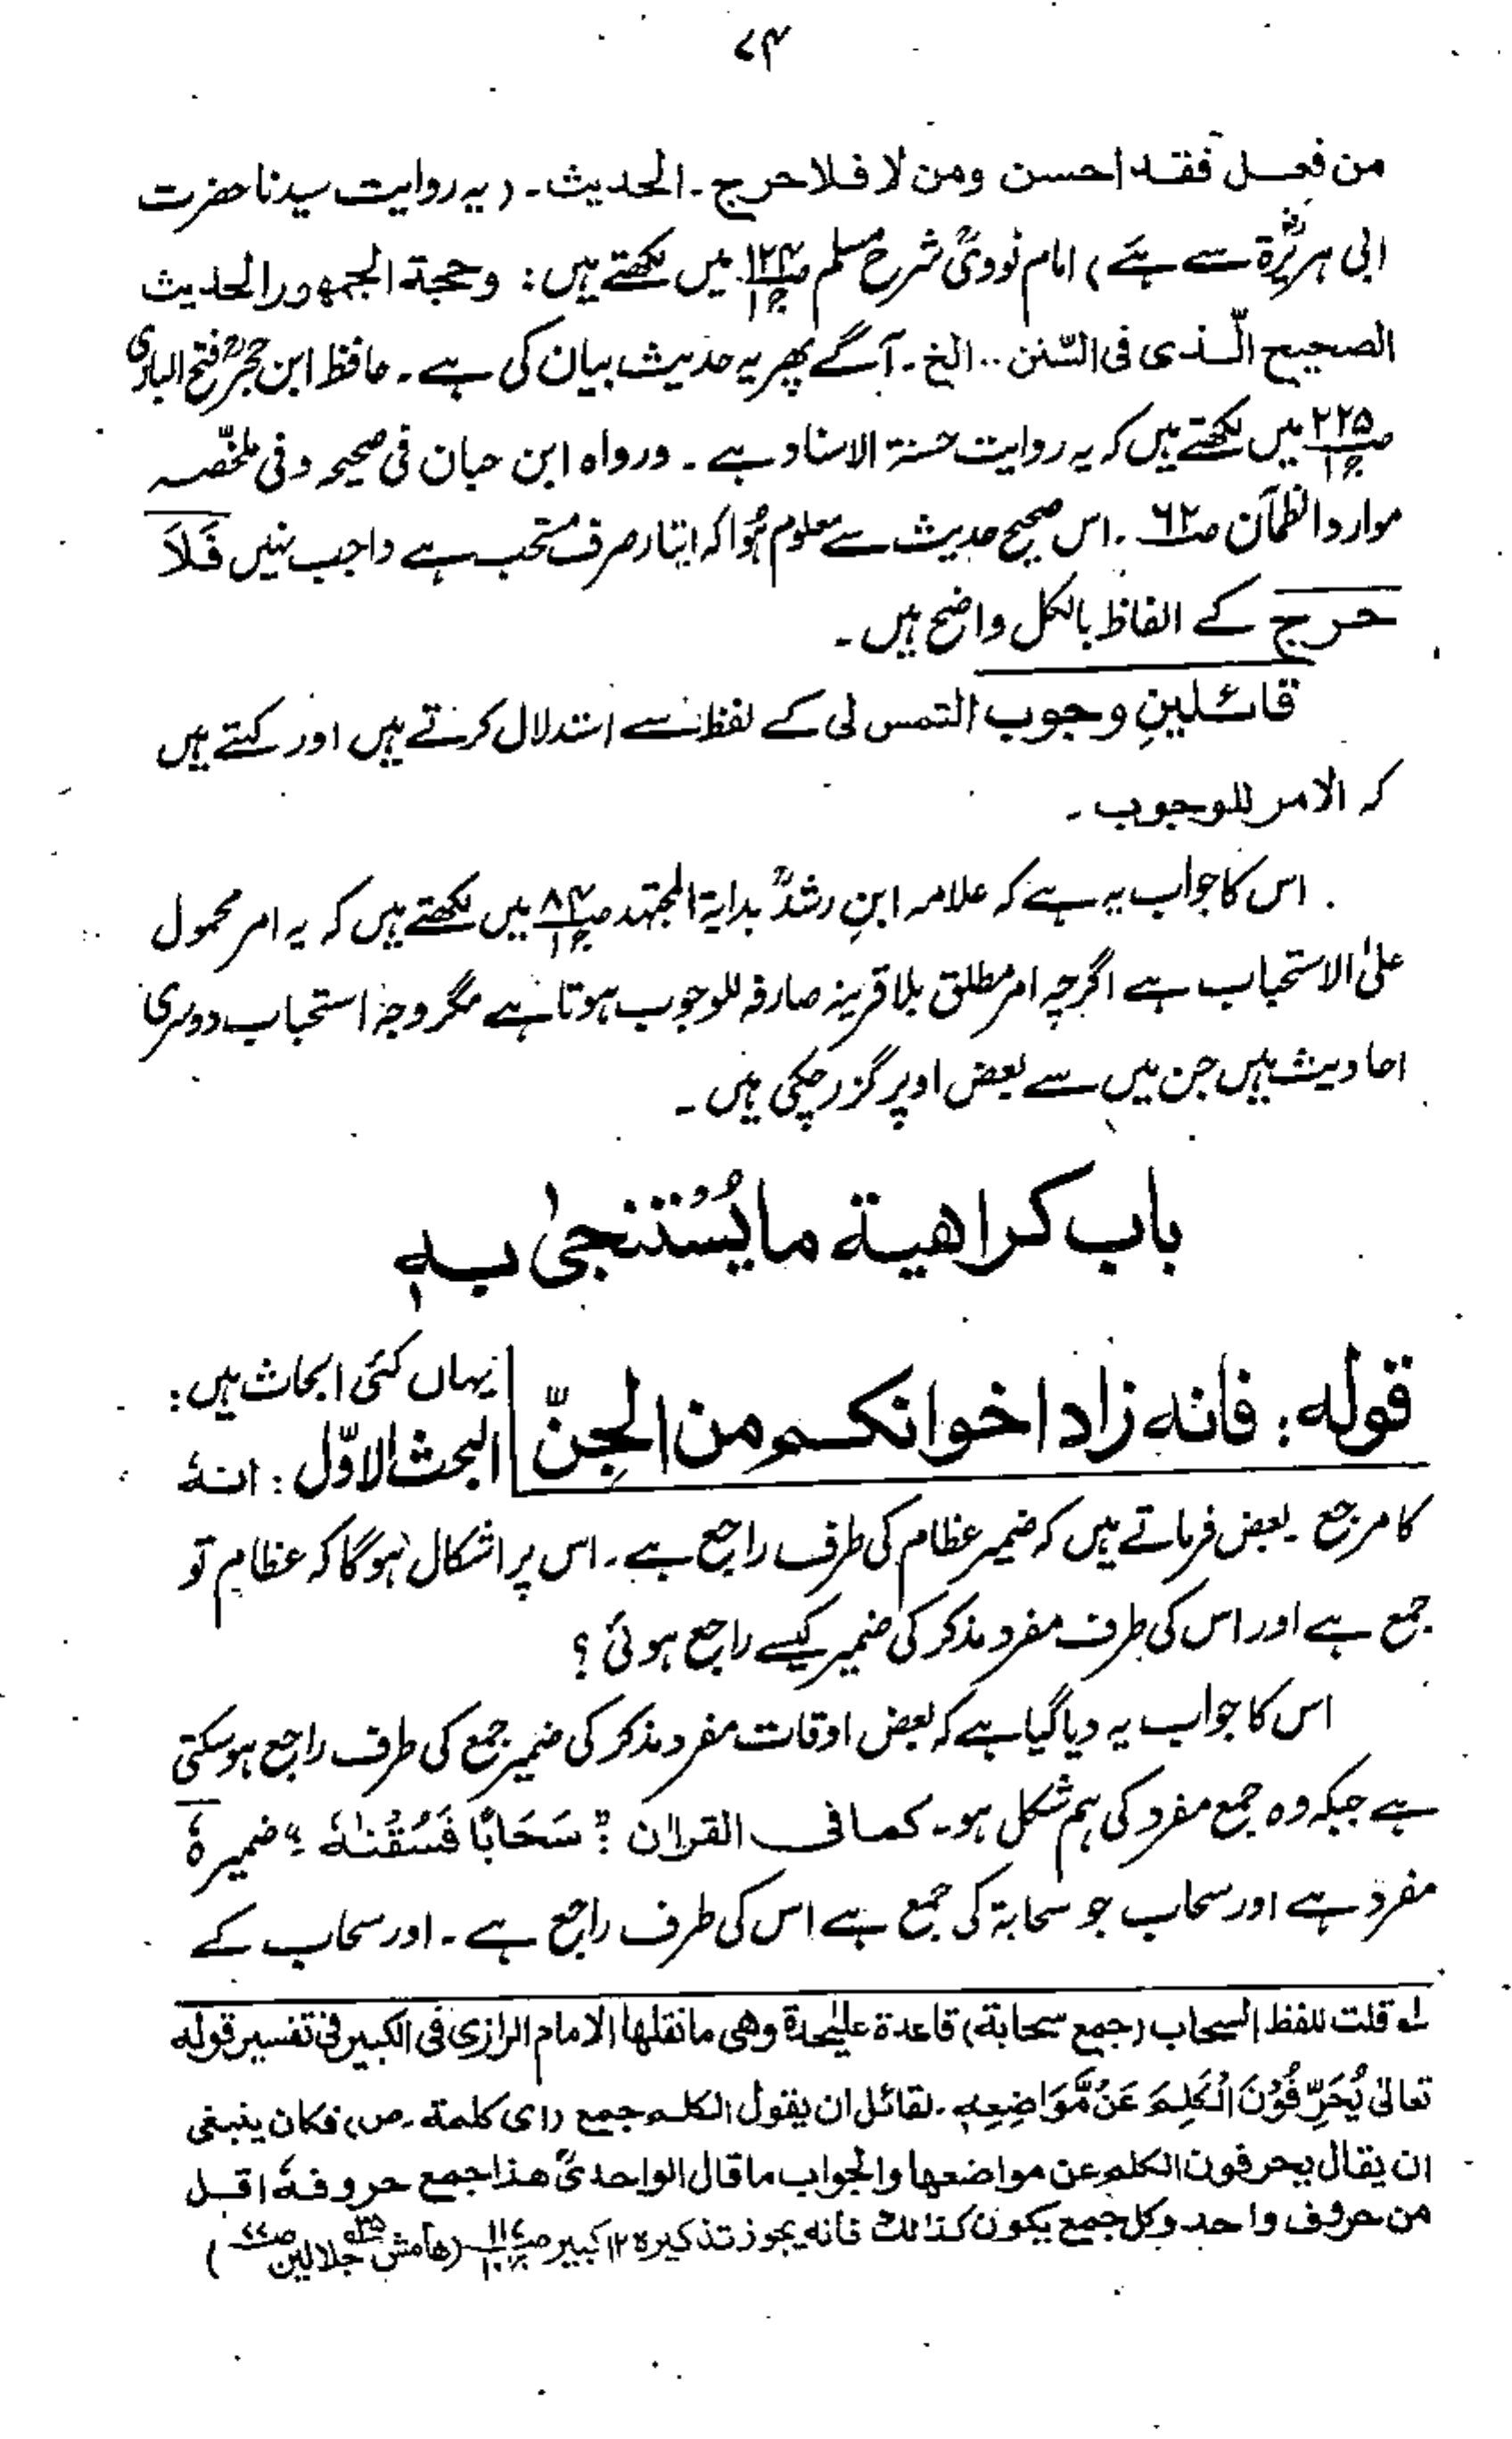 ۷۴
من فعل فقد احسن ومن لا فلا حرج ۔ الحدیث ۔ (یہ روایت سیدنا حضرت
ابی ہریرۃؓ سے ہے) امام نوویؒ شرح مسلم ص۱۲۴ ج۱ میں لکھتے ہیں: وحجة الجمهور الحدیث
الصحیح الّذی فی السّنن .. الخ ۔ آگے پھر یہ حدیث بیان کی ہے ۔ حافظ ابن حجرؒ فتح الباری
ص۲۲۵ ج۱ میں لکھتے ہیں کہ یہ روایت حسنۃ الاسناد ہے ۔ ورواہ ابن حبان فی صحیحہ وفی ملخّصہ
موارد الظمآن ص۶۲ ۔ اس صحیح حدیث سے معلوم ہُوا کہ ایتار صرف مستحب ہے واجب نہیں فَلاَ
حرج کے الفاظ بالکل واضح ہیں ۔
قائلینِ وجوب التمس لی کے لفظ سے استدلال کرتے ہیں اور کہتے ہیں
کہ الامر للوجوب ۔
اس کا جواب یہ ہے کہ علامہ ابنِ رشدؒ بدایۃ المجتہد ص۸۴ ج۱ میں لکھتے ہیں کہ یہ امر محمول
علیٰ الاستحباب ہے اگرچہ امر مطلق بلا قرینہ صارفہ للوجوب ہوتا ہے مگر وجہ استحباب دوسری
احادیث ہیں جن میں سے بعض اوپر گزر چکی ہیں ۔
باب کراهیة ما یُسْتنجیٰ بهٖ
قوله: فانه زاد اخوانکم من الجِنّ
یہاں کئی ابحاث ہیں:
البحث الاوّل : انہٗ
کا مرجع ۔ بعض فرماتے ہیں کہ ضمیر عظام کی طرف راجع ہے ۔ اس پر اشکال ہوگا کہ عظام تو
جمع ہے اور اس کی طرف مفرد مذکر کی ضمیر کیسے راجع ہوئی ؟
اس کا جواب یہ دیا گیا ہے کہ بعض اوقات مفرد مذکر کی ضمیر جمع کی طرف راجع ہوسکتی
ہے جبکہ وہ جمع مفرد کی ہم شکل ہو ۔ کما فی القرآن : سَحَابًا فَسُقْنٰهُ " ضمیر ہٗ
مفرد ہے اور سحاب جو سحابۃ کی جمع ہے اس کی طرف راجع ہے ۔ اور سحاب کے
لہ قلت للفظ السحاب (جمع سحابة) قاعدة علیٰحدة وهی ما نقلها الامام الرازی فی الکبیر فی تفسیر قوله
تعالیٰ یُحَرِّفُوْنَ الْکَلِمَ عَنْ مَّوَاضِعِهٖ ۔ لقائل ان یقول الکلم جمع (ای کلمة ۔ ص) فکان ینبغی
ان یقال یحرفون الکلم عن مواضعها والجواب ما قال الواحدیؒ هذا جمع حروفهٗ اقل
من حروف واحد وکل جمع یکون کذالک فانه یجوز تذکیره ۱۲ کبیر (هامش جلالین